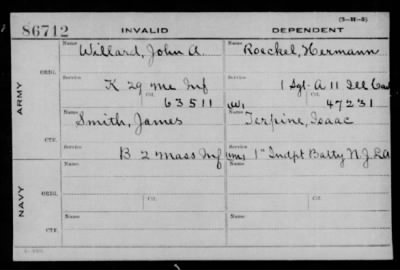 (3-H-5)
86712 INVALID DEPENDENT
Name Willard, John A. Name Roeckel, Hermann
ARMY
ORIG. Service K 29 Me Inf Service 1 Sgt. A 11 Ill Cav
Ctf. 63511 Ctf. 47231
Name Smith, James Name Terpine, Isaac
CTF. Service B 2 Mass Inf Service 1" Indpt Batty N.J. L.A.
NAVY
ORIG. Name Name
CTF. Name Name